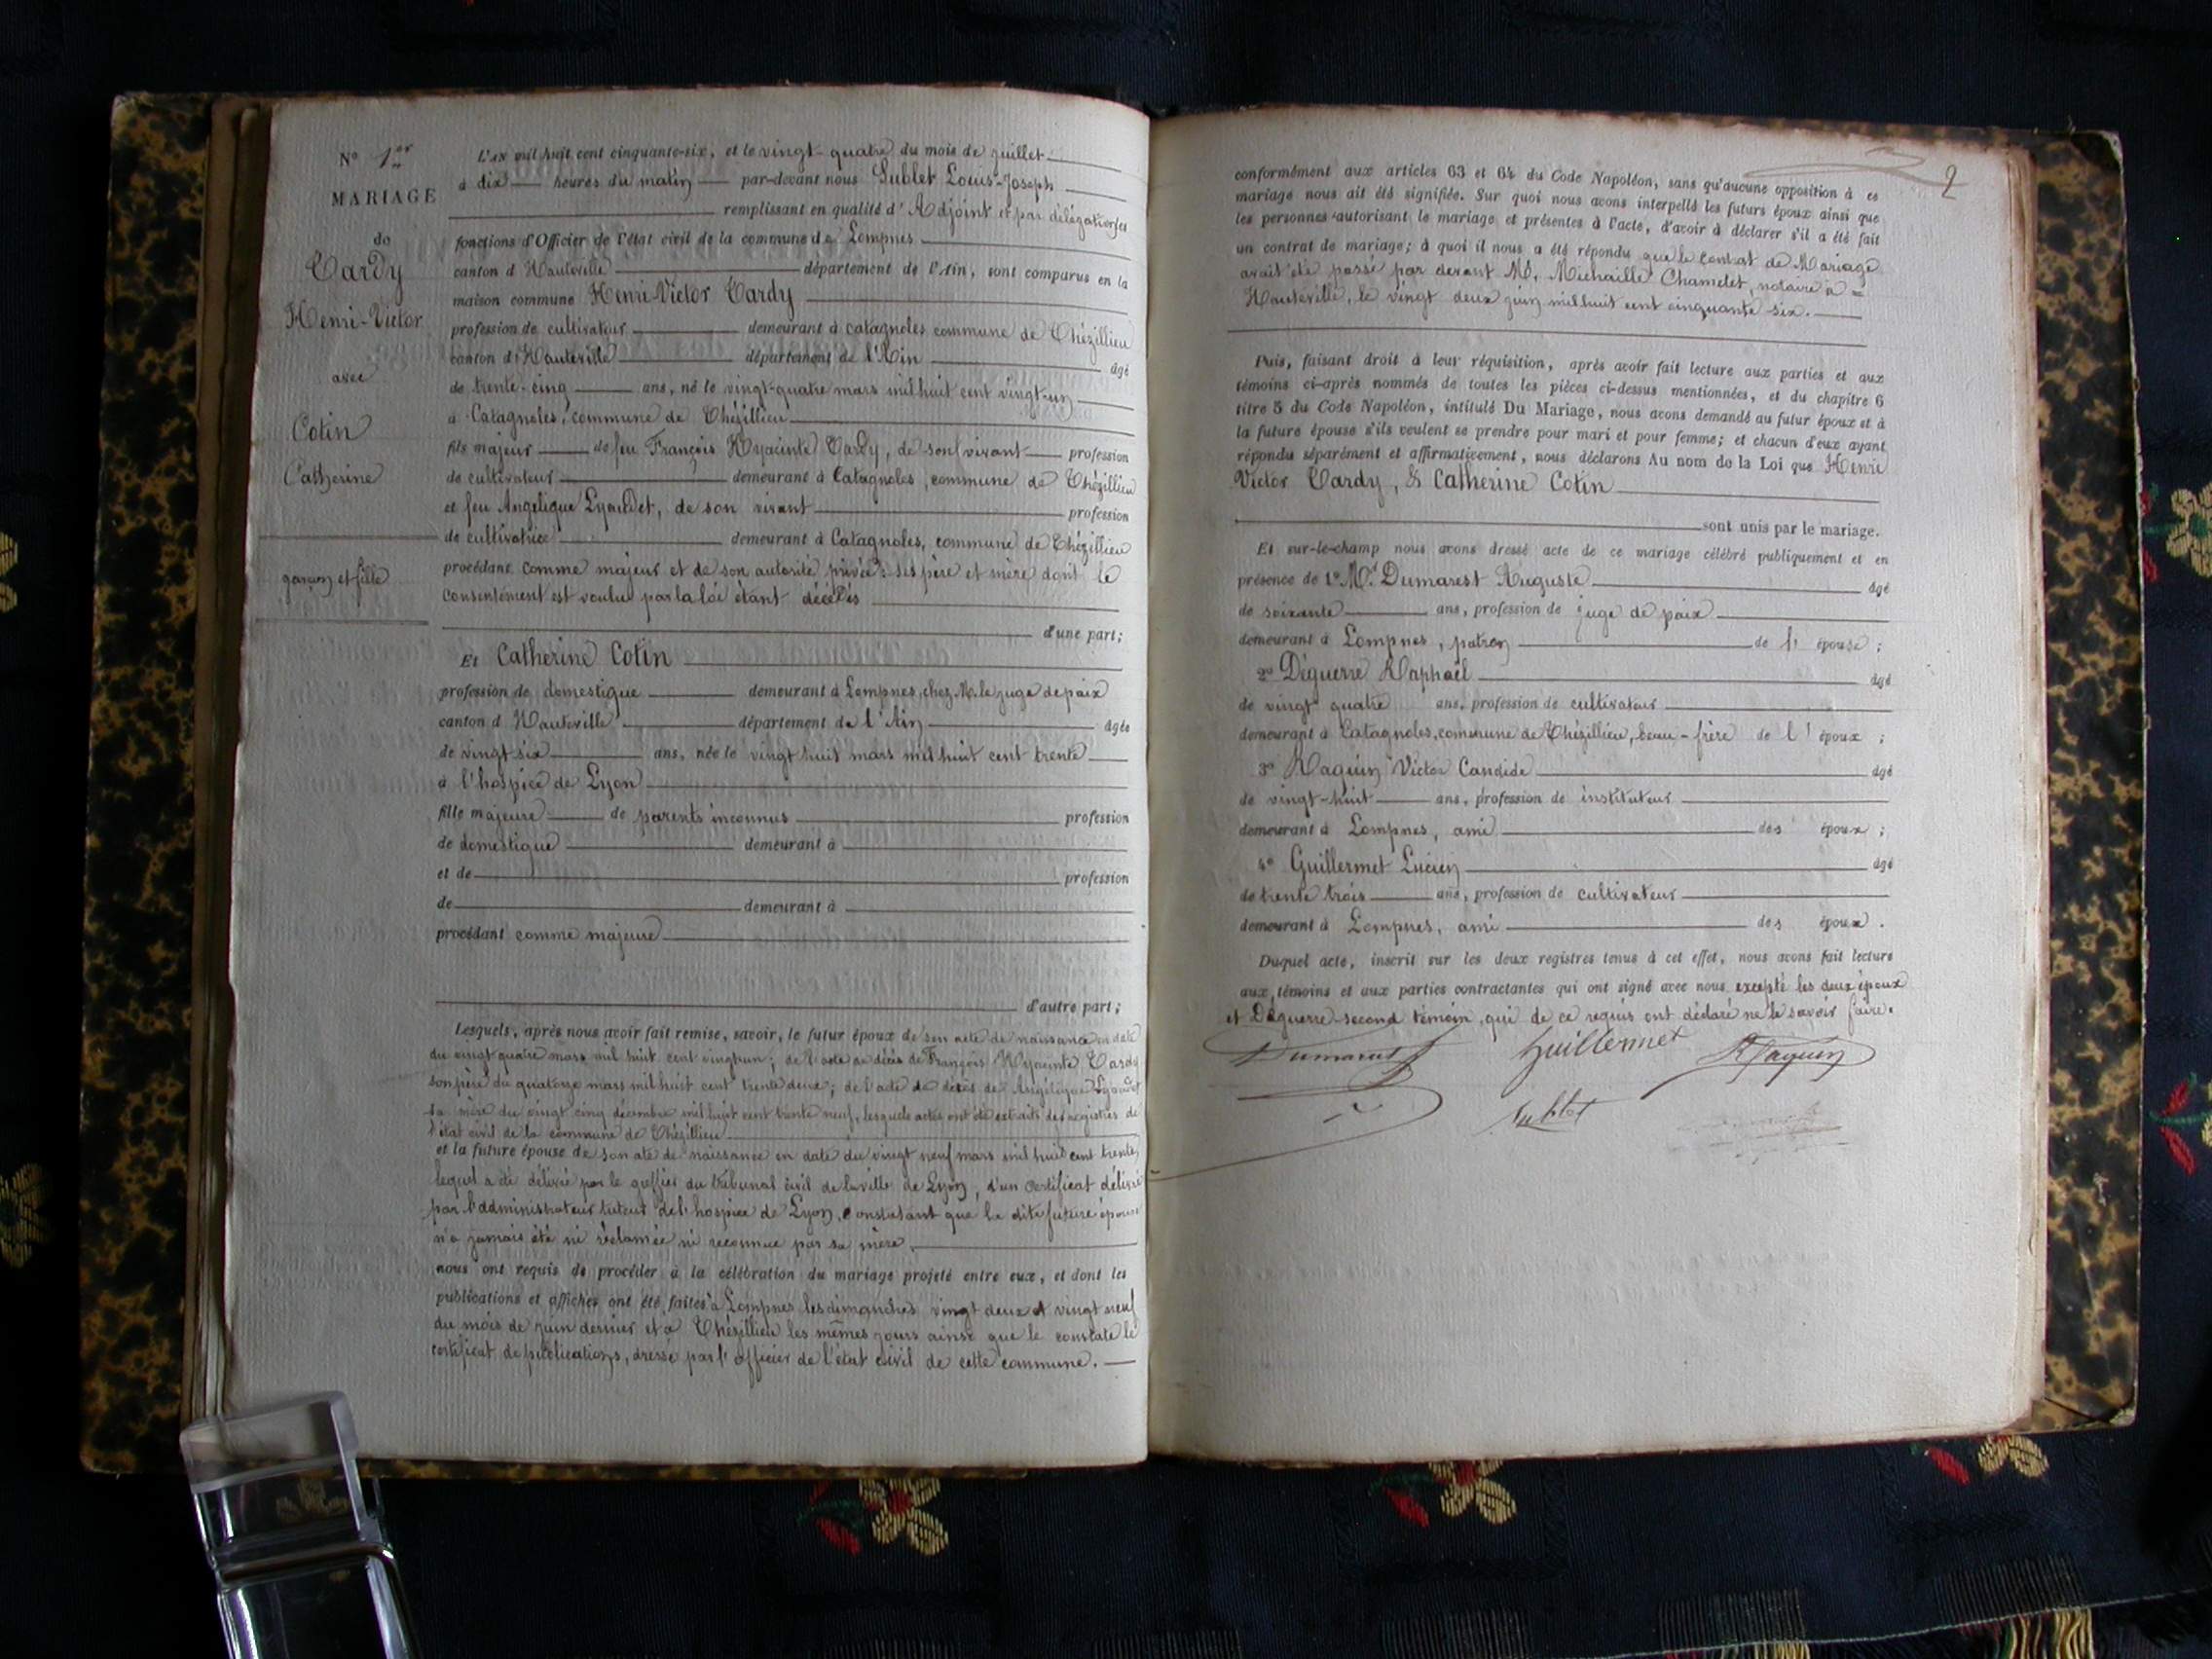 N° 1er
MARIAGE
de
Tardy
Henri-Victor
avec
Cotin
Catherine
garçon et fille
L'AN mil huit cent cinquante-six, et le vingt-quatre du mois de juillet
à dix heures du matin par-devant nous Sublet Louis-Joseph
remplissant en qualité d'Adjoint et par délégation les
fonctions d'Officier de l'état civil de la commune de Lompnes
canton d'Hauteville département de l'Ain, sont comparus en la
maison commune Henri-Victor Tardy
profession de cultivateur demeurant à Catagnoles commune de Thézillieu
canton d'Hauteville département de l'Ain âgé
de trente-cinq ans, né le vingt-quatre mars mil huit cent vingt-un
à Catagnoles, commune de Thézillieu
fils majeur de feu François Hyacinte Tardy, de son vivant profession
de cultivateur demeurant à Catagnoles, commune de Thézillieu
et feu Angélique Lyaudet, de son vivant profession
de cultivatrice demeurant à Catagnoles, commune de Thézillieu
procédant comme majeur et de son autorité privée: ses père et mère dont le
consentement est voulu par la loi étant décédés
d'une part;
Et Catherine Cotin
profession de domestique demeurant à Lompnes, chez M. le juge de paix
canton d'Hauteville département de l'Ain âgée
de vingt six ans, née le vingt huit mars mil huit cent trente
à l'hospice de Lyon
fille majeure de parents inconnus profession
de domestique demeurant à
et de profession
de demeurant à
procédant comme majeure
d'autre part;
Lesquels, après nous avoir fait remise, savoir, le futur époux de son acte de naissance en date
du vingt quatre mars mil huit cent vingt un; de l'acte de décès de François Hyacinte Tardy
son père du quatorze mars mil huit cent trente deux; de l'acte de décès de Angélique Lyaudet
sa mère du vingt cinq décembre mil huit cent trente neuf, lesquels actes ont été extraits des registres de
l'état civil de la commune de Thézillieu
et la future épouse de son ate de naissance en date du vingt neuf mars mil huit cent trente,
lequel a été délivré par le greffier du tribunal civil de la ville de Lyon, d'un certificat délivré
par l'administrateur tuteur de l'hospice de Lyon, constatant que la dite future épouse
n'a jamais été ni réclamée ni reconnue par sa mère,
nous ont requis de procéder à la célébration du mariage projeté entre eux, et dont les
publications et affiches ont été faites à Lompnes les dimanches vingt deux et vingt neuf
du mois de juin dernier et à Thézillieu les mêmes jours ainsi que le constate le
certificat de publications, dressé par l'officier de l'état civil de cette commune.
2
conformément aux articles 63 et 64 du Code Napoléon, sans qu'aucune opposition à ce
mariage nous ait été signifiée. Sur quoi nous avons interpellé les futurs époux ainsi que
les personnes autorisant le mariage et présentes à l'acte, d'avoir à déclarer s'il a été fait
un contrat de mariage; à quoi il nous a été répondu que le contrat de Mariage
avait été passé par devant Me. Michaille Chamelet, notaire à =
Hauteville, le vingt deux juin mil huit cent cinquante six.
Puis, faisant droit à leur réquisition, après avoir fait lecture aux parties et aux
témoins ci-après nommés de toutes les pièces ci-dessus mentionnées, et du chapitre 6
titre 5 du Code Napoléon, intitulé Du Mariage, nous avons demandé au futur époux et à
la future épouse s'ils veulent se prendre pour mari et pour femme; et chacun d'eux ayant
répondu séparément et affirmativement, nous déclarons Au nom de la Loi que Henri
Victor Tardy, & Catherine Cotin
sont unis par le mariage.
Et sur-le-champ nous avons dressé acte de ce mariage célébré publiquement et en
présence de 1° Mr. Dumarest Auguste âgé
de soixante ans, profession de juge de paix
demeurant à Lompnes, patron de l'épouse;
2° Déguerre Raphaël âgé
de vingt quatre ans, profession de cultivateur
demeurant à Catagnoles, commune de Thézillieu, beau-frère de l'époux;
3° Raquin Victor Candide âgé
de vingt-huit ans, profession de instituteur
demeurant à Lompnes, ami des époux;
4° Guillermet Lucien âgé
de trente trois ans, profession de cultivateur
demeurant à Lompnes, ami des époux.
Duquel acte, inscrit sur les deux registres tenus à cet effet, nous avons fait lecture
aux témoins et aux parties contractantes qui ont signé avec nous excepté les deux époux
et Déguerre second témoin, qui de ce requis ont déclaré ne le savoir faire.
Dumarest Guillermet Raquin
Sublet